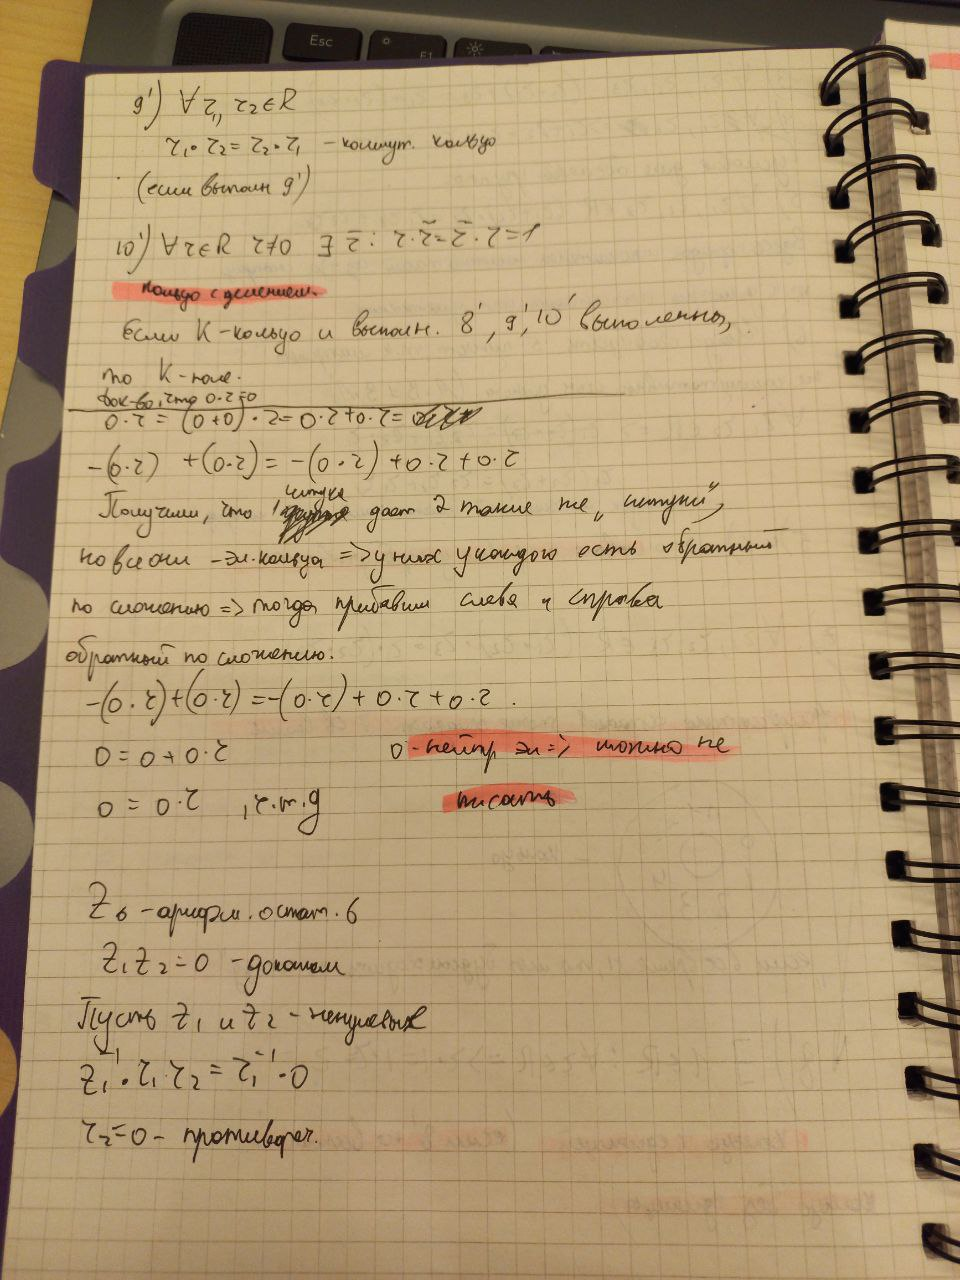 Esc
F1
9') ∀ r₁, r₂ ∈ R
r₁·r₂ = r₂·r₁ – коммут. кольцо
(если выполн 9')
10') ∀ r∈R r≠0 ∃ r̄ : r·r̄ = r̄·r = 1
Кольцо с делением.
Если К-кольцо и выполн. 8', 9', 10' выполенны,
то К-поле.
Док-во, что 0·r=0
0·r = (0+0)·r = 0·r+0·r =
-(0·r) +(0·r) = -(0·r) +0·r+0·r
Получим, что 1 штука даёт 2 такие же „штуки",
но все они – эл. кольца => у них у каждого есть обратный
по сложению => тогда, прибавим слева и справа
обратный по сложению.
-(0·r)+(0·r) =-(0·r)+ 0·r+0·r.
0 = 0+0·r 0-нейтр эл => можно не
0 = 0·r , ч.т.д писать
Z₆ – арифм. остат. 6
Z₁Z₂=0 – докажем
Пусть Z₁ и Z₂ – ненулевых
Z₁⁻¹·r₁·r₂ = r₁⁻¹·0
r₂=0 – противореч.